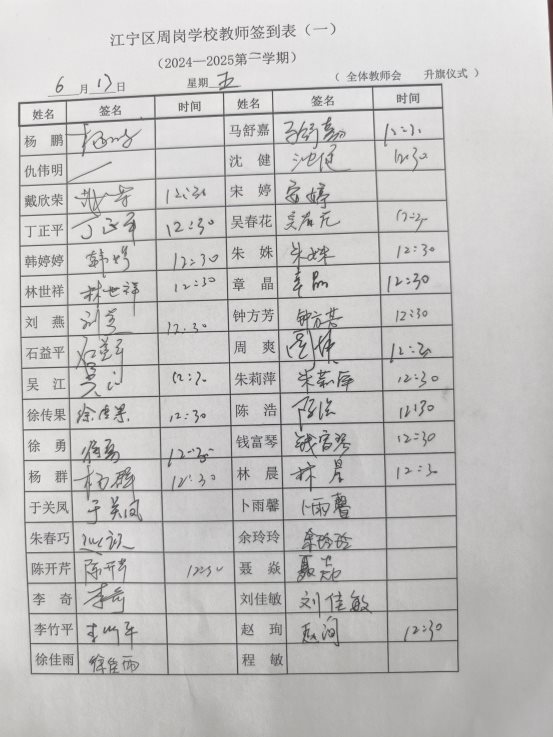 江宁区周岗学校教师签到表（一）
（2024—2025第二学期）
6月13日 星期五 （ 全体教师会 升旗仪式 ）
姓名 签名 时间 姓名 签名 时间
杨 鹏 马舒嘉 马舒嘉 12:30
仇伟明 沈 健 沈健 12:30
戴欣荣 12:30 宋 婷 宋婷
丁正平 丁正平 12:30 吴春花 吴春花
韩婷婷 韩婷 12:30 朱 姝 朱姝 12:30
林世祥 林世祥 12:30 章 晶 章晶 12:30
刘 燕 刘燕 12:30 钟方芳 钟方芳 12:30
石益平 石益平 周 爽 周爽 12:30
吴 江 吴江 12:30 朱莉萍 朱莉萍 12:30
徐传果 徐传果 12:30 陈 浩 陈浩 12:30
徐 勇 徐勇 12:30 钱富琴 钱富琴 12:30
杨 群 杨群 12:30 林 晨 林晨 12:30
于关凤 于关凤 卜雨馨 卜雨馨
朱春巧 余玲玲 余玲玲
陈开芹 陈开芹 12:30 聂 焱 聂焱
李 奇 李奇 刘佳敏 刘佳敏
李竹平 李竹平 赵 珣 赵珣 12:30
徐佳雨 徐佳雨 程 敏